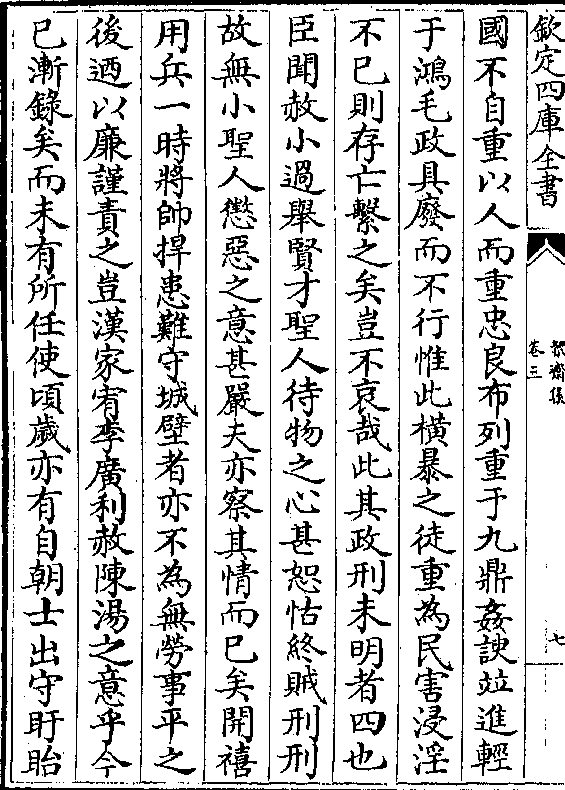 欽定四庫全書
絜齋集
卷三
七
國不自重以人而重忠良布列重于九鼎姦諛竝進輕
于鴻毛政具廢而不行惟此横暴之徒重為民害浸淫
不已則存亡繫之矣豈不哀哉此其政刑未明者四也
臣聞赦小過舉賢才聖人待物之心甚恕怙終賊刑刑
故無小聖人懲惡之意甚嚴夫亦察其情而已矣開禧
用兵一時將帥捍患難守城壁者亦不為無勞事平之
後迺以廉謹責之豈漢家宥李廣利赦陳湯之意乎今
已漸錄矣而未有所任使頃歲亦有自朝士出守盱眙